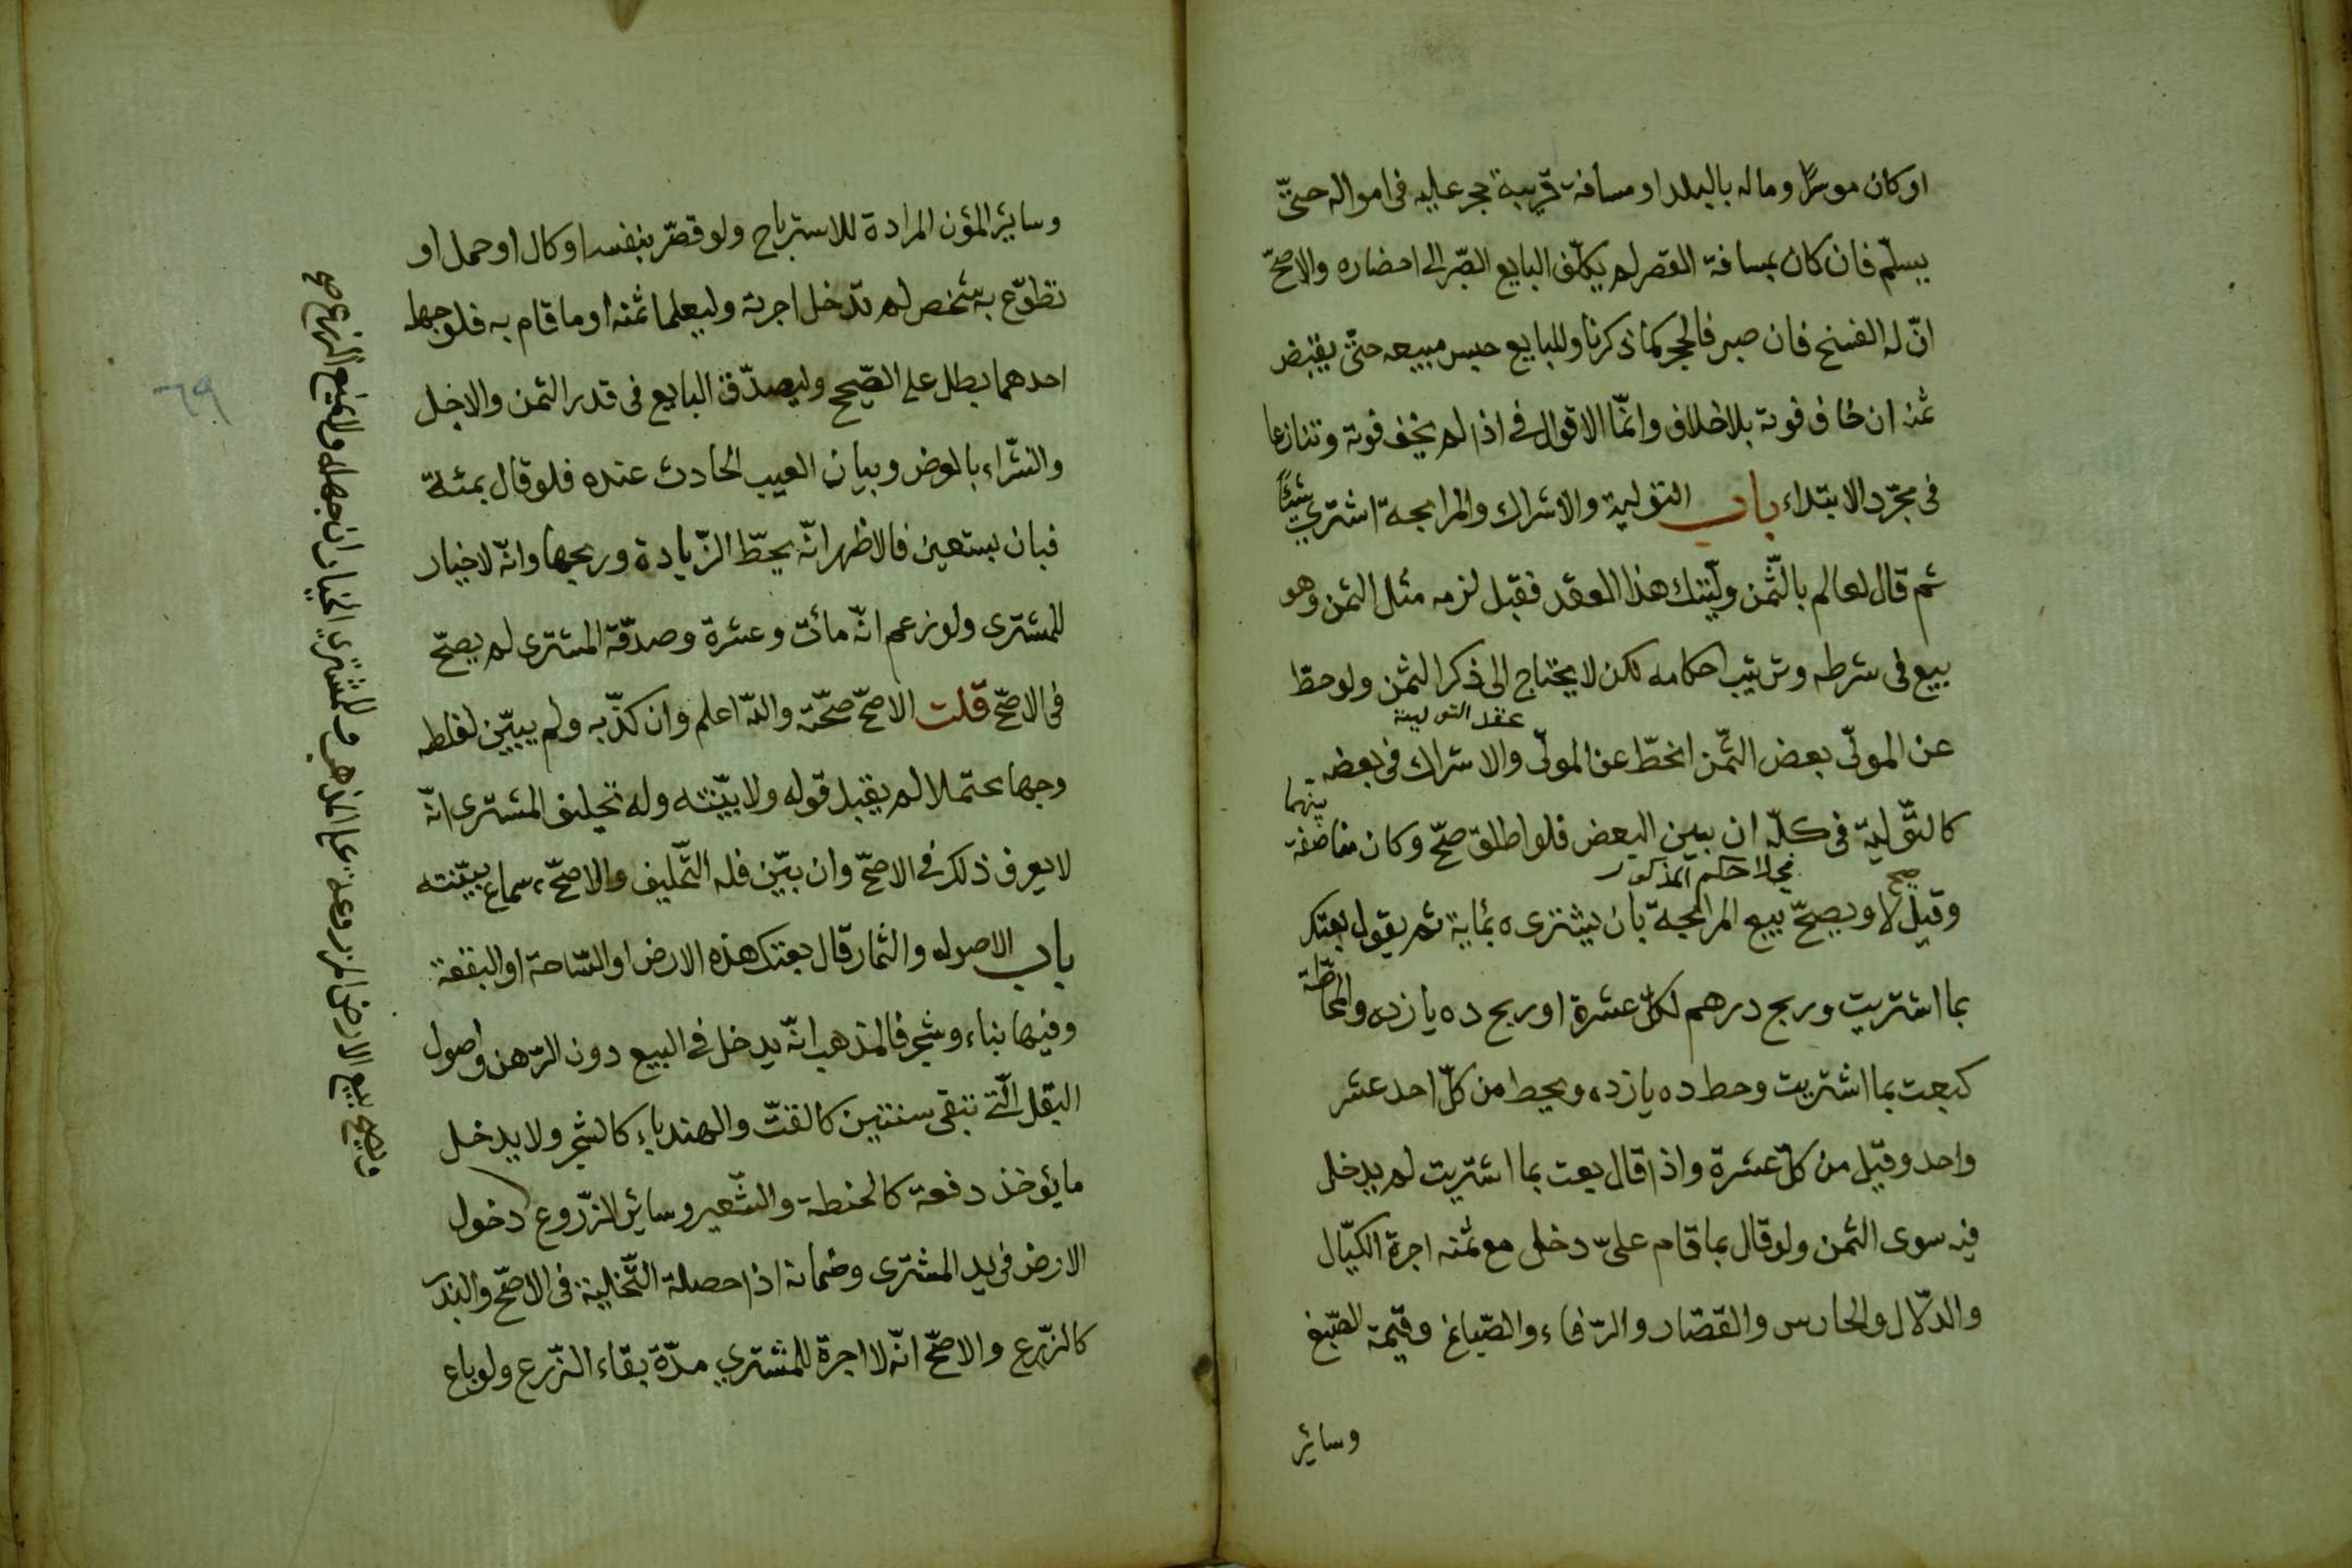 اوكان موسرًا وماله بالبلد او مسافة قريبة حجر عليه فى امواله حتّى
يسلّم فان كان بمسافة القصر لم يكلّف البايع الصّبر الى احضاره والاصحّ
انّ له الفسخ فان صبر فالحجر كما ذكرنا وللبايع حبس مبيعه حتّى يقبض
ثمنه ان خاف فوته بلاخلاف وانّما الاقوال فى اذا لم يخف فوته وتنازعا
فى مجرّد الابتداء باب التولية والاشراك والمرابحة اشترى شيئًا
ثم قال لعالم بالثّمن ولّيتك هذا العقد فقبل لزمه مثل الثمن وهو
بيع فى شرطه وترتيب احكامه لكن لا يحتاج الى ذكر الثمن ولو حطّ
عقد التولية
عن المولّى بعض الثّمن انحطّ عن المولّى والاشراك فى بعضه
كالتّولية فى كلّه ان بين البعض فلو اطلق صحّ وكان مناصفة بينهما
صح
وقيل لا ويصحّ بيع المرابحة بان يشترى ه بماية ثم يقول بعتك
بما اشتريت وربح درهم لكلّ عشرة او ربح ده يازده والمحاطّة
كبعت بما اشتريت وحط ده يازده ويحط من كلّ احد عشر
واحد وقيل من كلّ عشرة واذا قال بعت بما اشتريت لم يدخل
فيه سوى الثمن ولو قال بما قام علىّ دخل مع ثمنه اجرة الكيّال
والدلّال والحارس والقصّار والرّفاء والصّباغ وقيمة الصّبغ
وسائر
وسائر المؤن المرادة للاسترباح ولو قصّر بنفسه او كال او حمل او
تطوّع به شخص لم تدخل اجرته وليعلما ثمنه او ما قام به فلو جهله
احدهما بطل على الصّحيح وليصدّق البايع فى قدر الثمن والاجل
والشّراء بالعرض وبيان العيب الحادث عنده فلو قال بمئة
فبان بستعين فالاظهر انّه يحطّ الزّيادة وربحها وانّه لاخيار
للمشترى ولو زعم انّه مائة وعشرة وصدّقه المشترى لم يصحّ
فى الاصحّ قلت الاصحّ صحّته والله اعلم وان كذّبه ولم يبيّن لغلطه
وجها محتملا لم يقبل قوله ولا بيّنته وله تحليف المشترى انّه
لايعرف ذلك فى الاصحّ وان بيّن فله التّحليف والاصحّ سماع بيّنته
باب الاصول والثمار قال بعتك هذه الارض او السّاحة او البقعة
وفيها بناء وشجر فالمذهب انّه يدخل فى البيع دون الرّهن واصول
البقل الّتى تبقى سنتين كالقتّ والهندباء كالشجر ولا يدخل
ما يؤخذ دفعة كالحنطة والشّعير وسائر الزّروع دخول
الارض فى يد المشترى وضمانه اذا حصلة التّخلية فى الاصحّ والبذر
كالزّرع والاصحّ انّه لا اجرة للمشترى مدّة بقاء الزّرع ولو باع
ويصح بيع الارض المزروعة على المذهب وللمشترى الخيار ان جهله ولا يمنع الزرع صح
٦٩